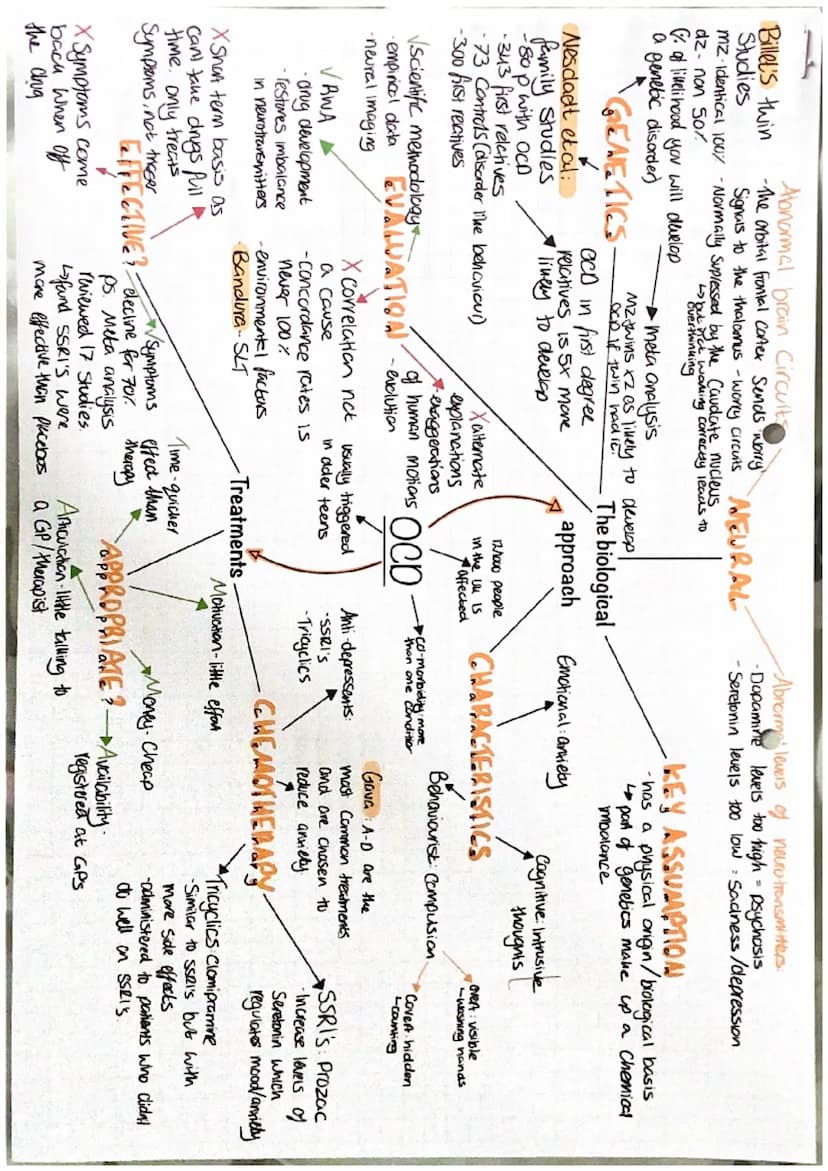 Billet's twin
Studies
mz - identical 100%
dz - non 50%
(% of likelihood you will develop
a genetic disorder)
Abnormal brain Circuits
- The orbital frontal cortex sends 'worry'
signals to the thalamus - worry circuits
- Normally supressed by the Caudate nucleus
↳ but not working correctly leads to
overthinking
NEURAL
Abnormal levels of neurotransmitters:
- Dopamine levels too high = psychosis
- Seretonin levels too low = Sadness/depression
GENETICS
→ meta analysis
MZ twins x2 as likely to develop
OCD if twin had it.
Nesdadt et al:
family studies
- 80 p with OCD
- 343 first relatives
- 73 controls (disorder like behaviour)
- 300 first relatives
OCD in first degree
relatives is 5x more
likely to develop
The biological
approach
KEY ASSUMPTION
- has a physical origin/biological basis
↳ part of genetics make up a chemical
imbalance
EVALUATION
✓ scientific methodology
- empirical data
- neural imaging
✓ RWA
- drug development
- restores imbalance
in neurotransmitters
X Correlation not
a cause
- concordance rates is
never 100%
- environmental factors
Bandura - SLT
X alternate
explanations
- exaggerations
of human motions
- evolution
OCD
usually triggered
in older teens
12/1000 people
in the UK is
affected
→ co-morbidity: more
than one condition
CHARACTERISTICS
Emotional: anxiety
Cognitive: intrusive
thoughts
Behaviourist: compulsion
overt: visible
↳ washing hands
Covert: hidden
Treatments
EFFECTIVE?
X Short term basis as
can't take drugs full
time. only treats
symptoms, not trigger
X Symptoms come
back when off
the drug
✓ Symptoms
decline for 70%
ps. Meta analysis
reviewed 17 studies.
↳ found SSRI's were
more effective than placebos
APPROPRIATE?
Time - quicker
effect than
therapy
Motivation - little effort
Money - Cheap
Availability -
registered at GPs
little talking to
a GP/therapist
CHEMOTHERAPY
Anti-depressents:
- SSRI's
- Tricyclics
Gava: A-D are the
most common treatments
and are chosen to
reduce anxiety.
SSRI's: Prozac
- Increase levels of
Seretonin which
regulates mood/anxiety
Tricyclics: clomipramine
- Similar to SSRIs but with
more side effects
- administered to patients who didnt
do well on SSRI's.